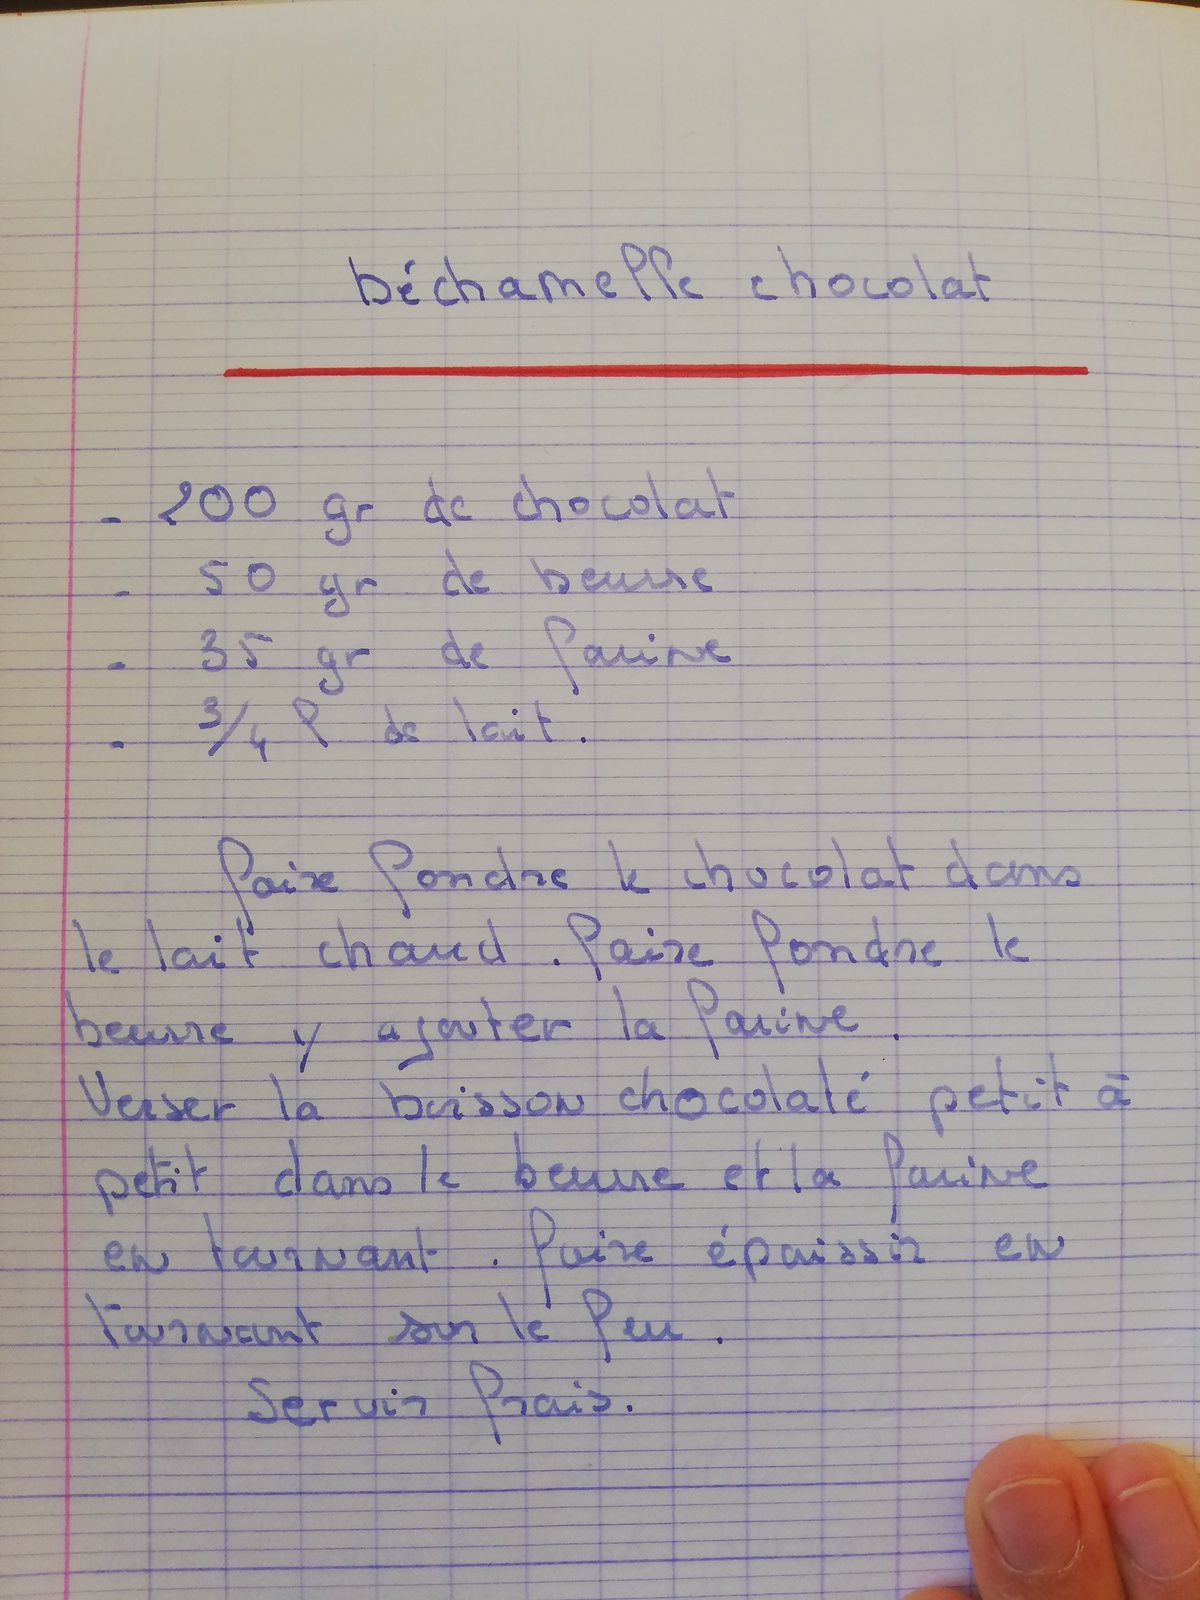 béchamelle chocolat
- 200 gr de chocolat
- 50 gr de beurre
- 35 gr de farine
- 3/4 l de lait.
faire fondre le chocolat dans
le lait chaud. faire fondre le
beurre y ajouter la farine.
Verser la boisson chocolaté petit à
petit dans le beurre et la farine
en tournant. faire épaissir en
tournant sur le feu.
Servir frais.